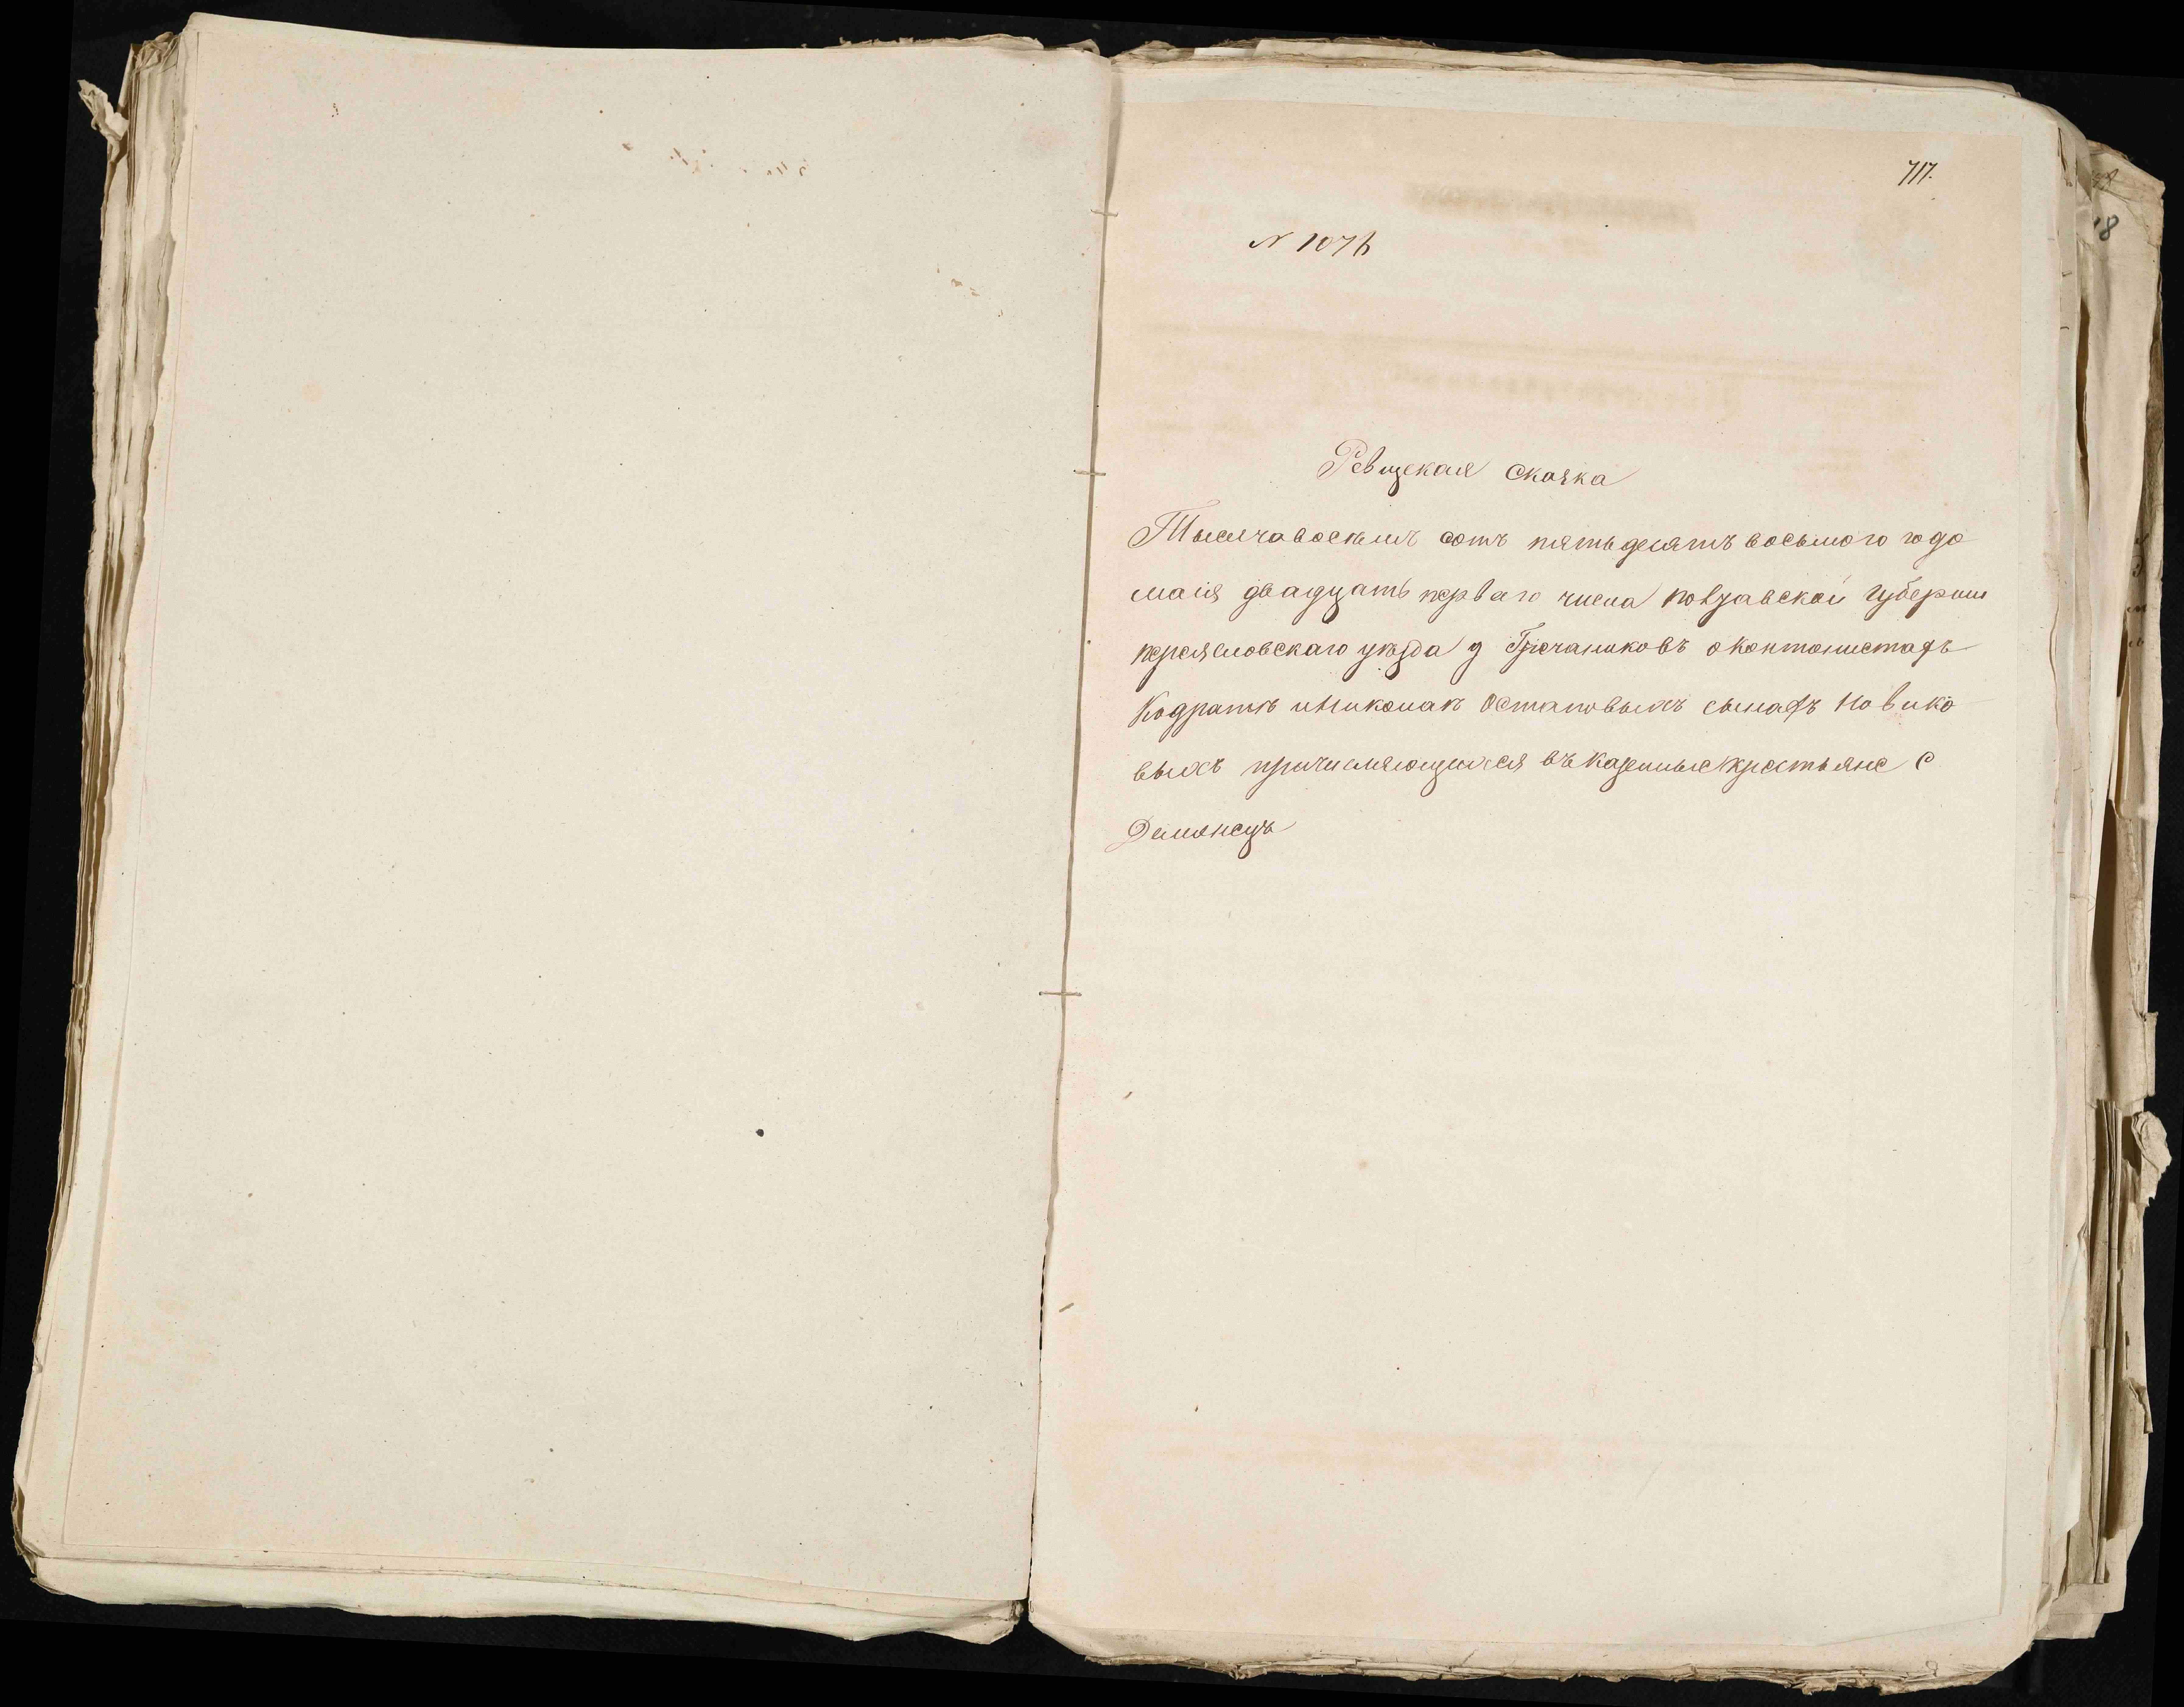 717.
18
N 1076
Ревизская сказка
Тысяча восемь сотъ пятьдесятъ восьмого года
маія двадцать перваго числа Полтавской губерніи
переясловскаго уезда д Гречаниковъ о контонистахъ
Кодратѣ и Николаѣ Остаповыхъ сынахъ Новико
выхъ причисляющихся въ казенные крестьяне с
Демянецъ